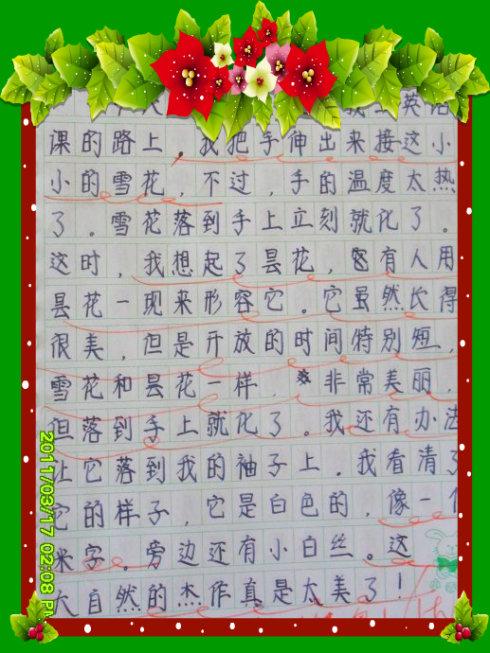 英语
课的路上，我把手伸出来接这小
小的雪花，不过，手的温度太热
了。雪花落到手上立刻就化了。
这时，我想起了昙花，有人用
昙花一现来形容它。它虽然长得
很美，但是开放的时间特别短，
雪花和昙花一样，非常美丽，
但落到手上就化了。我还有办法
让它落到我的袖子上。我看清了
它的样子，它是白色的，像一个
米字。旁边还有小白丝。这
大自然的杰作真是太美了！
2011/03/17 02:08 PM